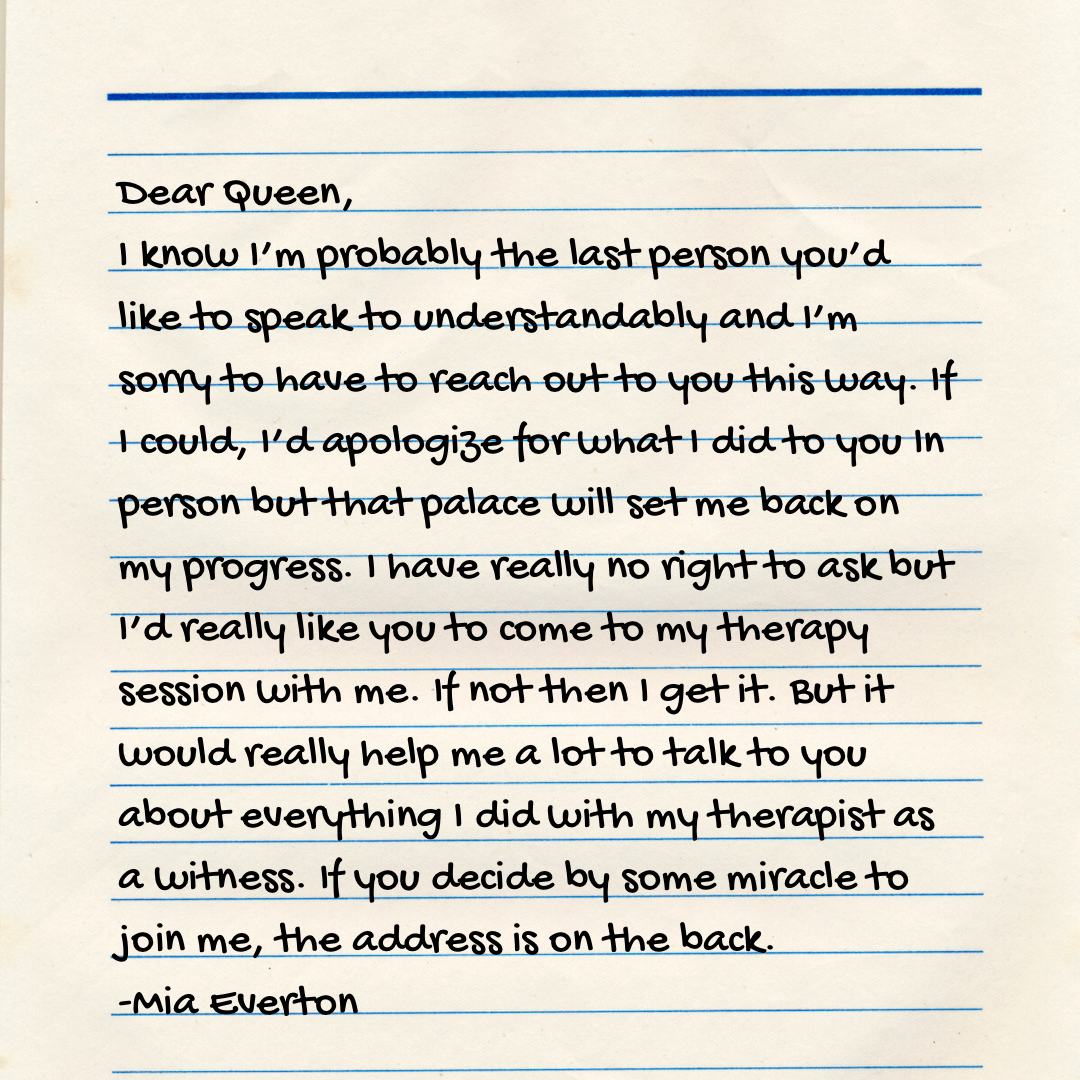 Dear Queen,
I know I'm probably the last person you'd
like to speak to understandably and I'm
sorry to have to reach out to you this way. If
I could, I'd apologize for what I did to you In
person but that palace will set me back on
my progress. I have really no right to ask but
I'd really like you to come to my therapy
session with me. If not then I get it. But it
would really help me a lot to talk to you
about everything I did with my therapist as
a witness. If you decide by some miracle to
join me, the address is on the back.
-Mia Everton